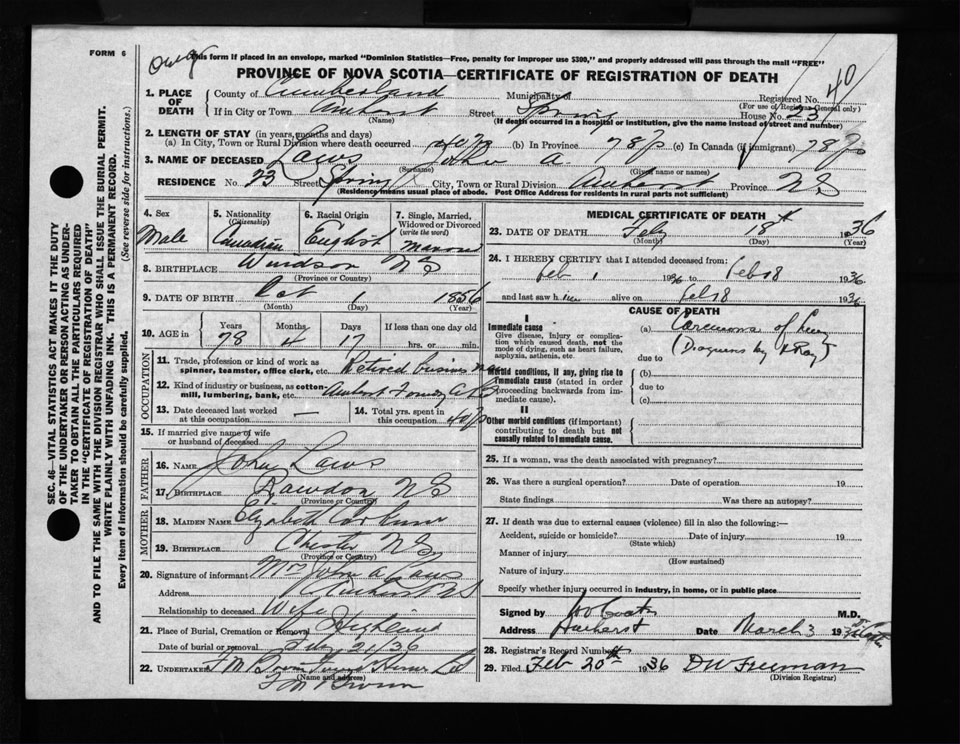 FORM 6
This form if placed in an envelope, marked "Dominion Statistics—Free, penalty for improper use $300," and properly addressed will pass through the mail "FREE"
PROVINCE OF NOVA SCOTIA—CERTIFICATE OF REGISTRATION OF DEATH
40
1. PLACE OF DEATH
County of Cumberland Municipality of Registered No.
(For use of Registrar General only)
If in City or Town Amherst Street Spring House No. 23
(Name) (If death occurred in a hospital or institution, give the name instead of street and number)
2. LENGTH OF STAY (in years, months and days)
(a) In City, Town or Rural Division where death occurred (b) In Province 78 (c) In Canada (if immigrant) 78
3. NAME OF DECEASED Laws John A.
(Surname) (Given name or names)
RESIDENCE No. 23 Street Spring City, Town or Rural Division Amherst Province N S
(Residence means usual place of abode. Post Office Address for residents in rural parts not sufficient)
4. Sex
Male
5. Nationality
(Citizenship)
Canadian
6. Racial Origin
English
7. Single, Married, Widowed or Divorced
(write the word)
Married
8. BIRTHPLACE Windsor N S
(Province or Country)
9. DATE OF BIRTH Oct 1 1856
(Month) (Day) (Year)
10. AGE in
Years Months Days If less than one day old
78 4 17 hrs. or min.
OCCUPATION
11. Trade, profession or kind of work as spinner, teamster, office clerk, etc. Retired business man
12. Kind of industry or business, as cotton-mill, lumbering, bank, etc. Amherst Foundry Co
13. Date deceased last worked at this occupation —
14. Total yrs. spent in this occupation 40
15. If married give name of wife or husband of deceased
FATHER
16. NAME John Laws
17. BIRTHPLACE Rawdon N S
(Province or Country)
MOTHER
18. MAIDEN NAME Elizabeth
19. BIRTHPLACE Chester N S
(Province or Country)
20. Signature of informant Mrs John A Laws
Address Amherst N S
Relationship to deceased Wife
21. Place of Burial, Cremation or Removal Highland
Date of burial or removal Feby 21/36
22. Undertaker F M Brown Funeral Home Ltd
(Name and address)
F M Brown
MEDICAL CERTIFICATE OF DEATH
23. DATE OF DEATH Feby 18th 1936
(Month) (Day) (Year)
24. I HEREBY CERTIFY that I attended deceased from:
Feb 1 1936 to Feb 18 1936
and last saw him alive on Feb 18 1936
CAUSE OF DEATH
I
Immediate cause
Give disease, injury or complication which caused death, not the mode of dying, such as heart failure, asphyxia, asthenia, etc.
(a) Carcinoma of Lung
(Diagnosis by X Ray)
due to
Morbid conditions, if any, giving rise to immediate cause (stated in order proceeding backwards from immediate cause).
(b)
due to
(c)
II
Other morbid conditions (if important) contributing to death but not causally related to immediate cause.
25. If a woman, was the death associated with pregnancy?
26. Was there a surgical operation? Date of operation 19
State findings Was there an autopsy?
27. If death was due to external causes (violence) fill in also the following:—
Accident, suicide or homicide? Date of injury 19
(State which)
Manner of injury
(How sustained)
Nature of injury
Specify whether injury occurred in industry, in home, or in public place
Signed by M.D.
Address Amherst Date March 3 19
28. Registrar's Record Number
29. Filed Feb 20th 1936 D W Freeman
(Division Registrar)
SEC. 46—VITAL STATISTICS ACT MAKES IT THE DUTY
OF THE UNDERTAKER OR PERSON ACTING AS UNDER-
TAKER TO OBTAIN ALL THE PARTICULARS REQUIRED
IN THE "CERTIFICATE OF REGISTRATION OF DEATH"
AND TO FILE THE SAME WITH THE DIVISION REGISTRAR WHO SHALL ISSUE THE BURIAL PERMIT.
WRITE PLAINLY WITH UNFADING INK. THIS IS A PERMANENT RECORD.
Every item of information should be carefully supplied. (See reverse side for instructions.)